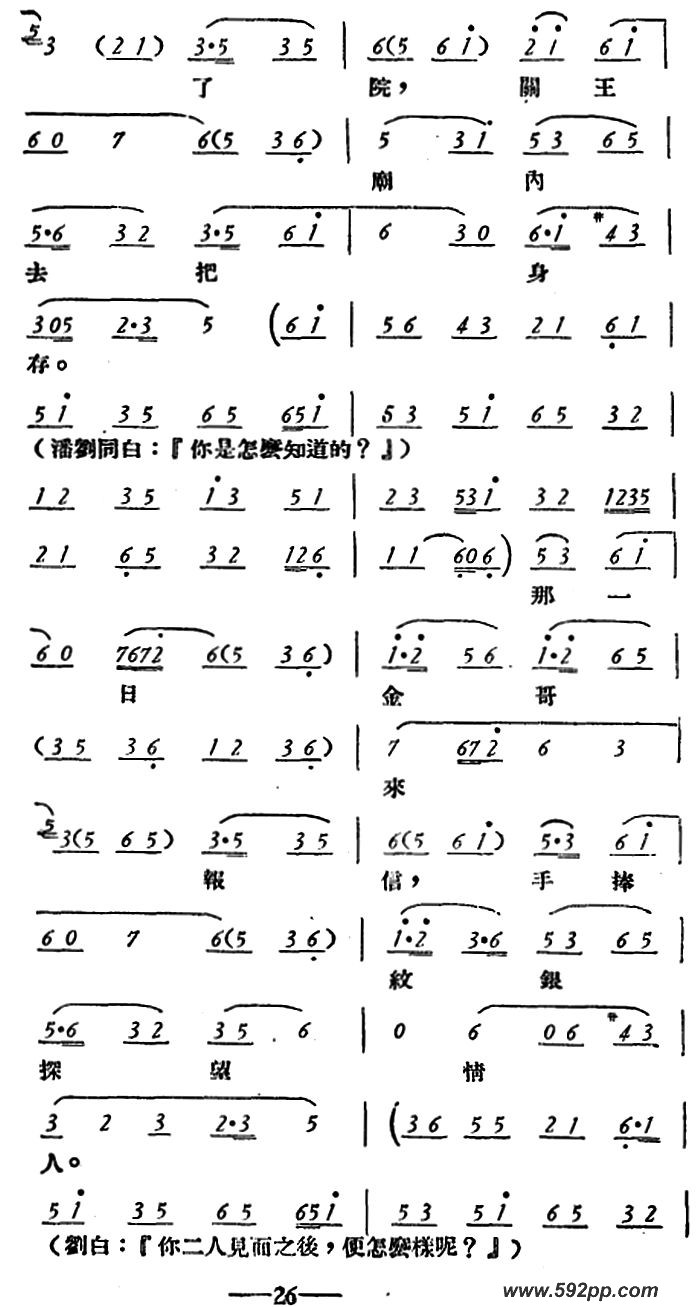 5 3 (2 1) 3·5 3 5 | 6(5 6 i) 2̇ i 6 i |
了 院， 關 王
6 0 7 6(5 3 6̣) | 5 3 i 5 3 6 5 |
廟 內
5·6 3 2 3·5 6 i | 6 3 0 6·i #4 3 |
去 把 身
3 0 5 2·3 5 (6 i | 5 6 4 3 2 1 6̣ 1 |
存。
5 i 3 5 6 5 6 5 i | 5 3 5 i 6 5 3 2 |
（潘劉同白：『你是怎麼知道的？』）
1 2 3 5 i 3 5 1 | 2 3 5 3 i 3 2 1 2 3 5 |
2 1 6̣ 5 3 2 1 2 6̣ | 1 1 6̣ 0 6̣) 5 3 6 i |
那 一
6 0 7 6 7 2̇ 6(5 3 6̣) | i·2̇ 5 6 i·2̇ 6 5 |
日 金 哥
(3 5 3 6̣ 1 2 3 6̣) | 7 6 7 2̇ 6 3 |
來
5 3(5 6 5) 3·5 3 5 | 6(5 6 i) 5·3 6 i |
報 信， 手 捧
6 0 7 6(5 3 6̣) | i·2̇ 3·6 5 3 6 5 |
紋 銀
5·6 3 2 3 5 6 | 0 6 0 6 #4 3 |
探 望 情
3 2 3 2·3 5 | (3 6 5 5 2 1 6̣·1 |
人。
5 i 3 5 6 5 6 5 i | 5 3 5 i 6 5 3 2 |
（劉白：『你二人見面之後，便怎麼樣呢？』）
—26—
www.592pp.com